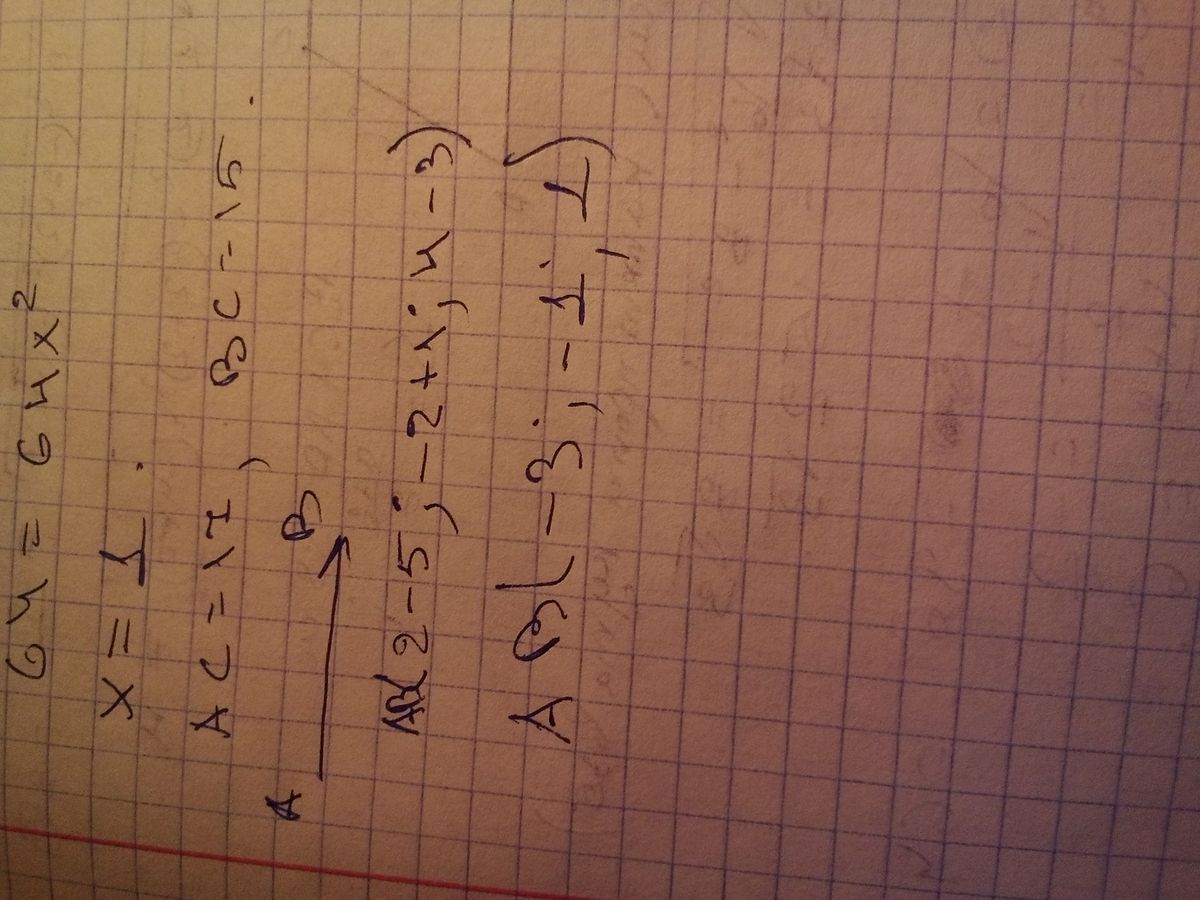 64 = 64x²
x = 1.
AC = 17, BC = 15.
A B
AB(2-5; -2+1; 4-3)
AB(-3; -1; 1)